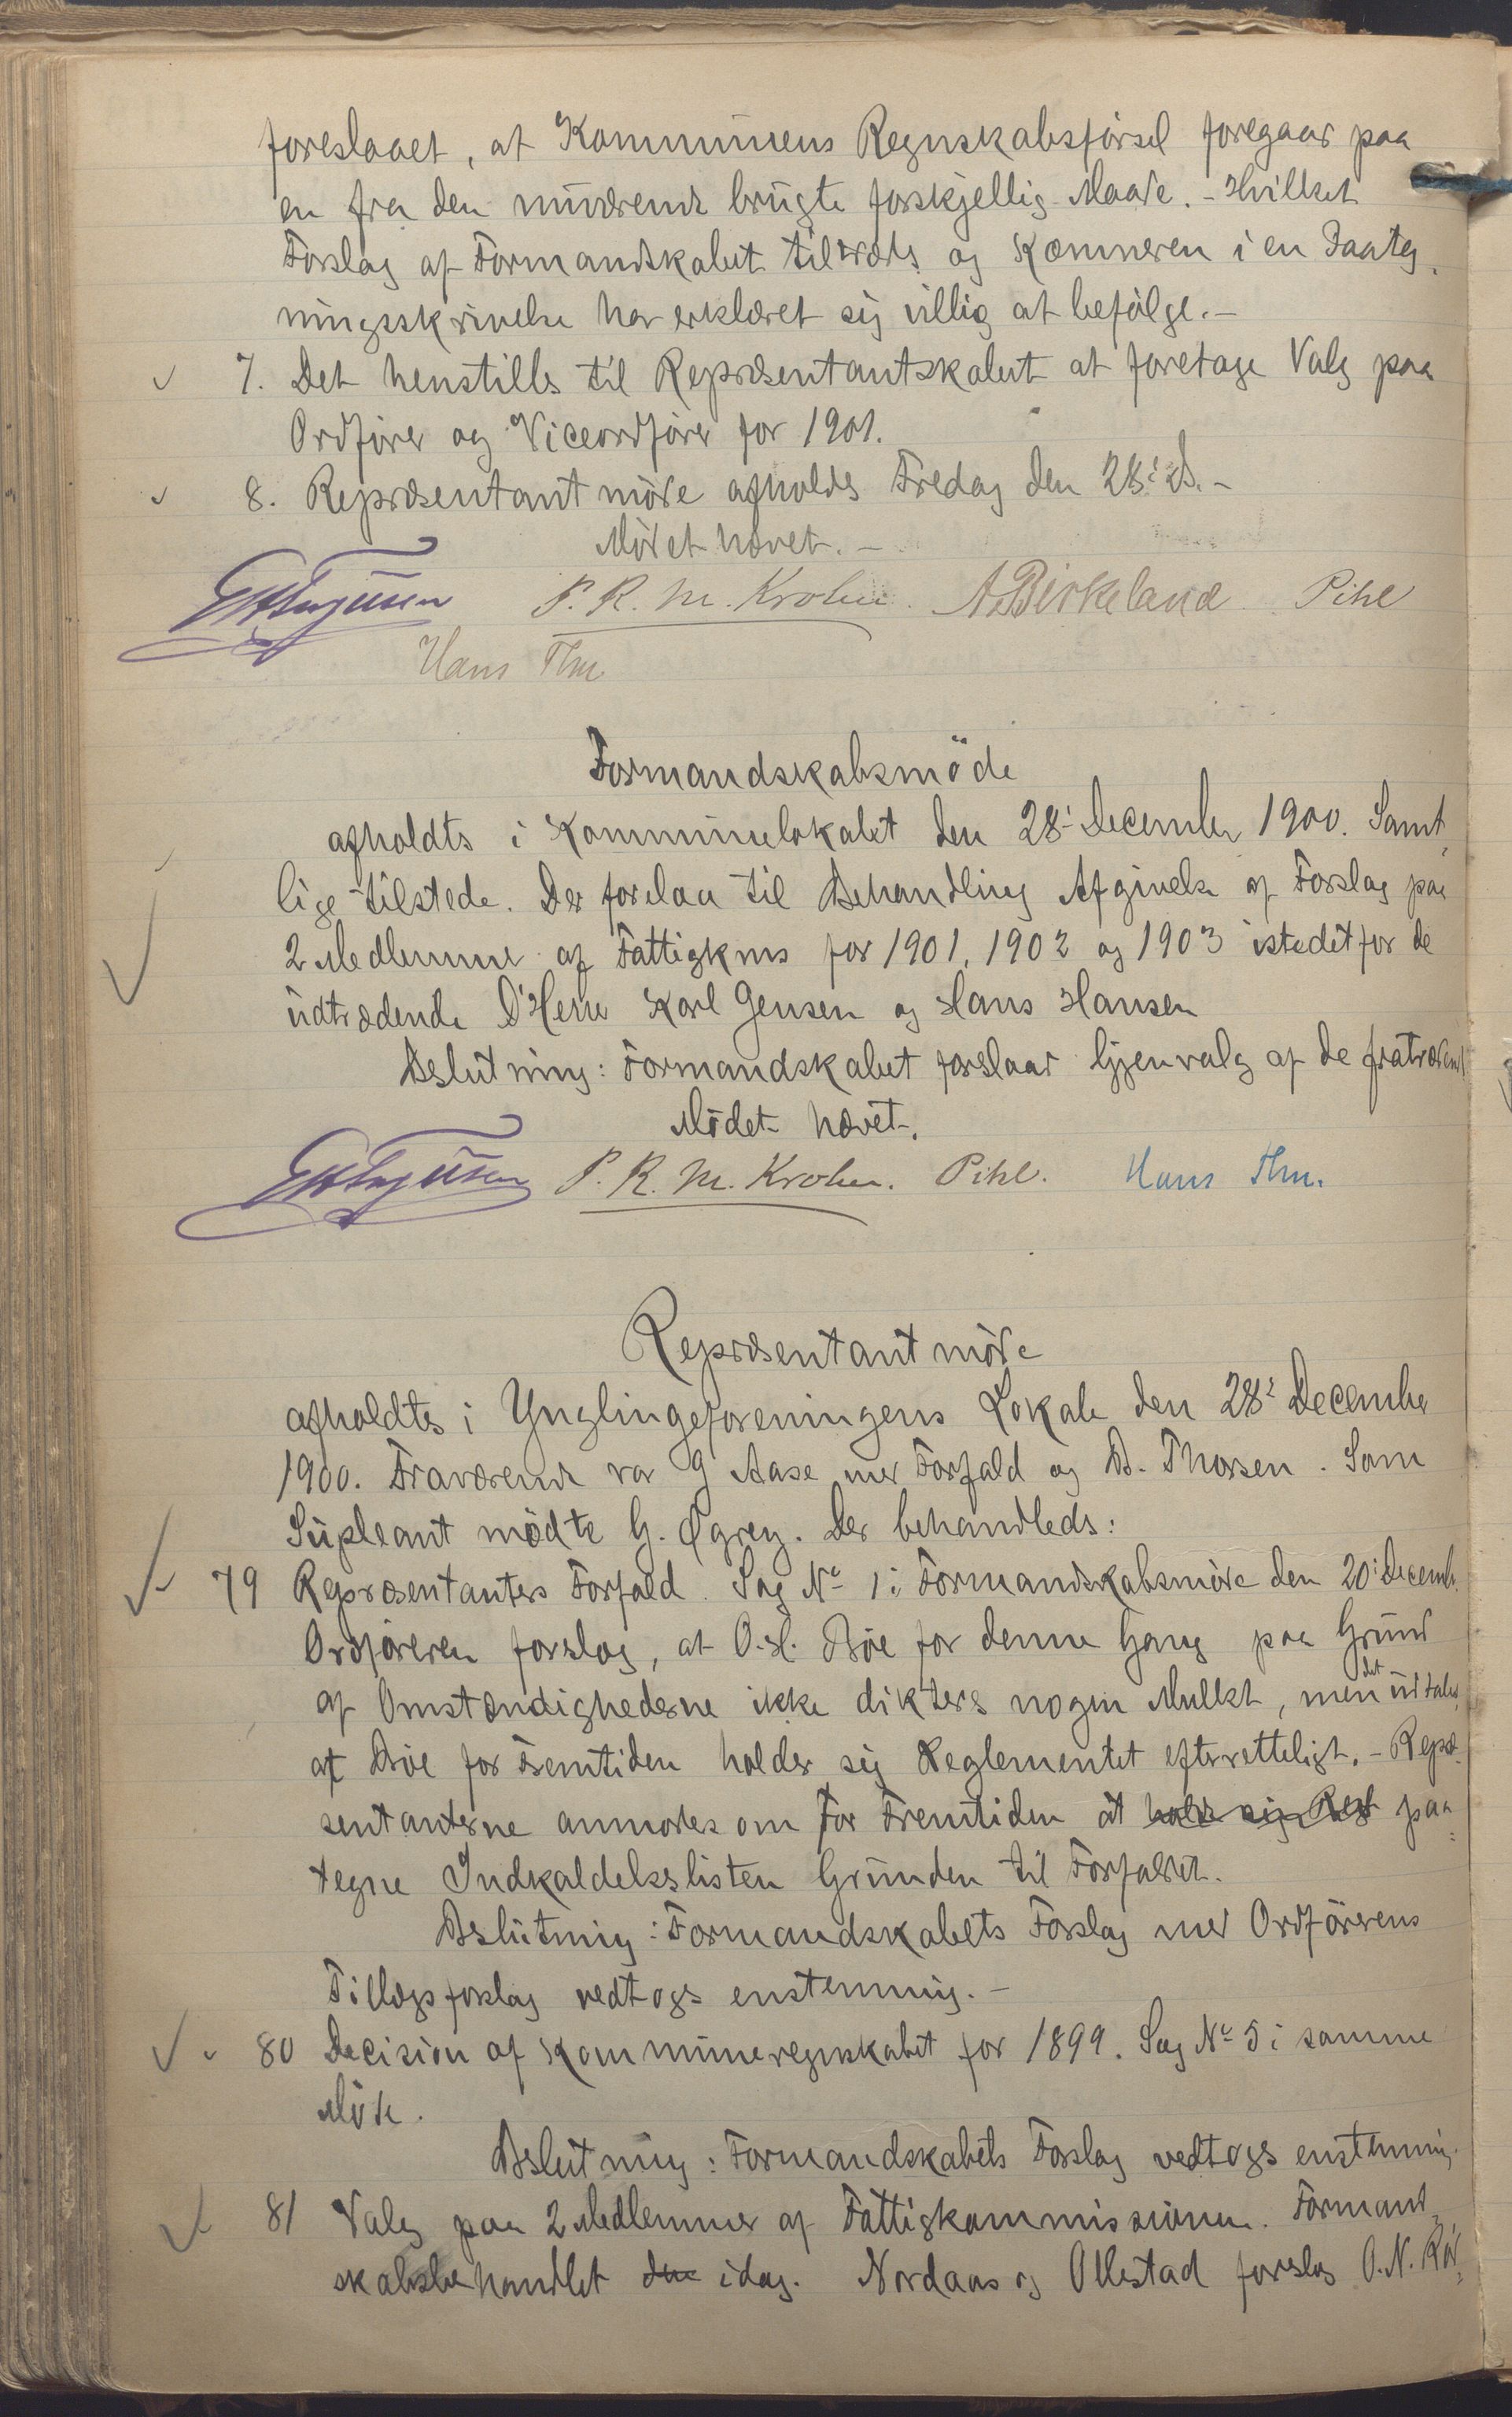 foreslaaet, at Kommunens Regnskabsførsel foregaar paa
en fra den nuværende brugte forskjellig Maade. - Hvilket
Forslag af Formandskabet tiltrædes og Kæmneren i en Paateg-
ningsskrivelse har erklæret sig villig at befølge. -
7. Det henstilles til Repræsentantskabet at foretage Valg paa
Ordfører og Viceordfører for 1901.
8. Repræsentantmøde afholdes Fredag den 28' ds. -
Mødet hævet. -
P. R. M. Krohn. A. Birkeland Pihl
Hans Thu
Formandskabsmøde
afholdts i Kommunelokalet den 28' December 1900. Samt-
lige tilstede. Der forelaa til Behandling Afgivelse af Forslag paa
2 Medlemmer af Fattigkms for 1901, 1902 og 1903 istedetfor de
udtrædende D'Herrer Karl Jensen og Hans Hansen
Beslutning: Formandskabet forslaar Gjenvalg af de fratrædende
Mødet hævet.
P. R. M. Krohn. Pihl. Hans Thu.
Repræsentantmøde
afholdtes i Ynglingeforeningens Lokale den 28' December
1900. Fraværende var G Aase med Forfald og B. Thorsen. Som
Supleant mødte G. Øgrey. Der behandleds:
79 Repræsentanters Forfald. Sag No 1 i Formandskabsmøde den 20' Decembr.
Ordføreren forslog, at O. H. Bøe for denne Gang paa Grund
af Omstændighederne ikke dikters nogen Mulkt, men det udtales,
at Bøe for Fremtiden holder sig Reglementet efterretteligt. - Repræ-
sentanterne anmodes om for Fremtiden at holde sig Regl paa-
tegne Indkaldelseslisten Grunden til Forfaldet.
Beslutning: Formandskabets Forslag med Ordførerens
Tillægsforslag vedtoges enstemmig. -
80 Decision af Kommuneregnskabet for 1899. Sag No 5 i samme
Møde.
Beslutning: Formandskabets Forslag vedtoges enstemmig.
81 Valg paa 2 Medlemmer af Fattigkommissionen. Formand-
skabsbehandlet den idag. Nordaas og Ollestad forslog O. N. Rød-